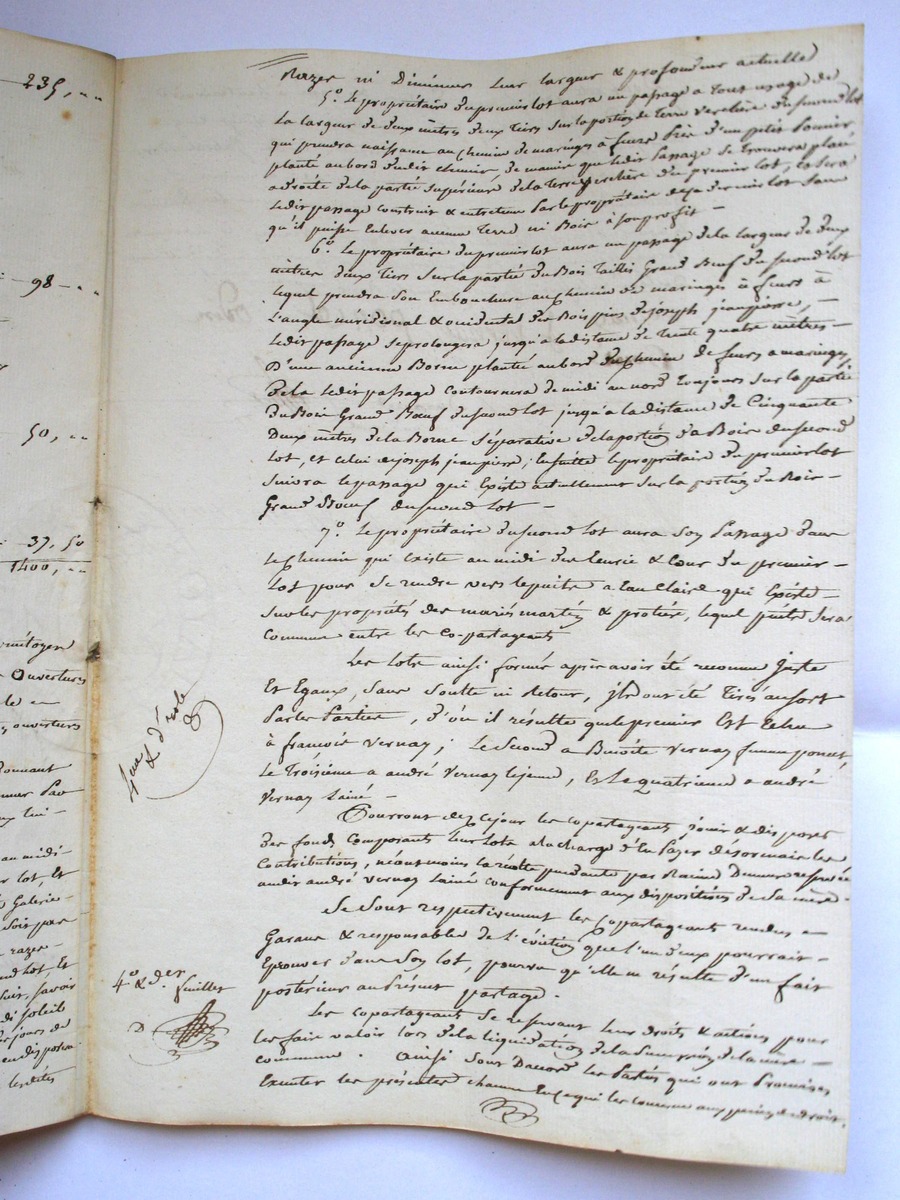 235, ..
98 - ..
50, ..
37, 50
1400, ..
mitoyen
ouvertures
ouvertures
au midi
lot, et
Galerie
Soit par
razer
lot, Et
Savoir
soleil
jours de
lesdites
Razer ni Diminuer leur largeur & profondeur actuelle
5.º Le propriétaire du premier lot aura un passage a tout usage de
La largeur de deux mètres deux tiers sur la portion de terre verchère du second lot
qui prendra naissance au chemin de maringes à feurs Près d'un petit Pomier
planté au bord dudit chemin, de manière que ledit Passage se trouvera placé
a droite de la partie supérieure de la terre verchère du premier lot, et sera
Ledit passage construit & entretenu Par le propriétaire du premier lot sans
qu'il puisse Enlever aucune terre ni Bois à son profit -
6.º Le propriétaire du premier lot aura un passage de la largeur de deux
mètres deux tiers sur la partie du Bois taillis Grand Bœuf du second lot
lequel prendra son Embouchure au chemin de maringes à feurs à
L'angle méridional & occidental des Bois pins de joseph jeanpierre, -
Ledit passage se prolongera jusqu'à la distance de trente quatre mètres -
D'une ancienne Borne planté au bord du chemin de feurs a maringes,
De la ledit passage contournera de midi au nord toujours sur la partie
du Bois Grand Bœuf du second lot jusqu'a la distance de Cinquante
Deux mètres de la Borne séparative de la portion du Bois du second
Lot, et celui de joseph jeanpierre; Ensuite le propriétaire du premier lot
Suivra le passage qui Existe actuellement sur la portion du Bois -
Grand Bœuf du second lot -
7.º Le propriétaire du second lot aura son Passage dans
Le chemin qui existe au midi de & Cour du premier -
Lot pour se rendre vers le puits a Eau Claire qui Existe -
Sur les propriétés des mariés & , lequel puits sera
Commun entre les Co-partageants
Les lots ainsi formés après avoir été reconnu juste
Et Egaux, sans soulte ni Retour, ils ont été tirés au sort
Par les Parties, D'où il résulte que le premier Est Echu
à françois Vernay; Le Second a Benoîte Vernay femme poncet,
Le troisième a andré Vernay le jeune, & Le quatrième a andré
Vernay L'ainé -
Pourront dez ce jour les copartageants jouir & disposer
Des fonds composants leurs lots a la charge d'En Payer désormais les
Contributions, néantmoins la récolte pendante par Racine Demeure réservée
audit andré Vernay L'ainé conformément aux dispositions de Sa mère
Se Sont respectivement les Copartageants rendus -
Garans & responsable de l'éviction que l'un d'eux pourrait -
Eprouver dans Son lot, pourvu qu'elle ne résulte d'un fait
postérieur au Présent partage.
Les copartageant se reservant leur droits & actions pour
Les faire valoir lors de la liquidation de la Succession de la mère -
commune. Ainsi sont D'accord les Parties qui ont Promises
Exécuter les présentes chacune En ce qui les concerne aux peines de droit.
4.º & der feuillet